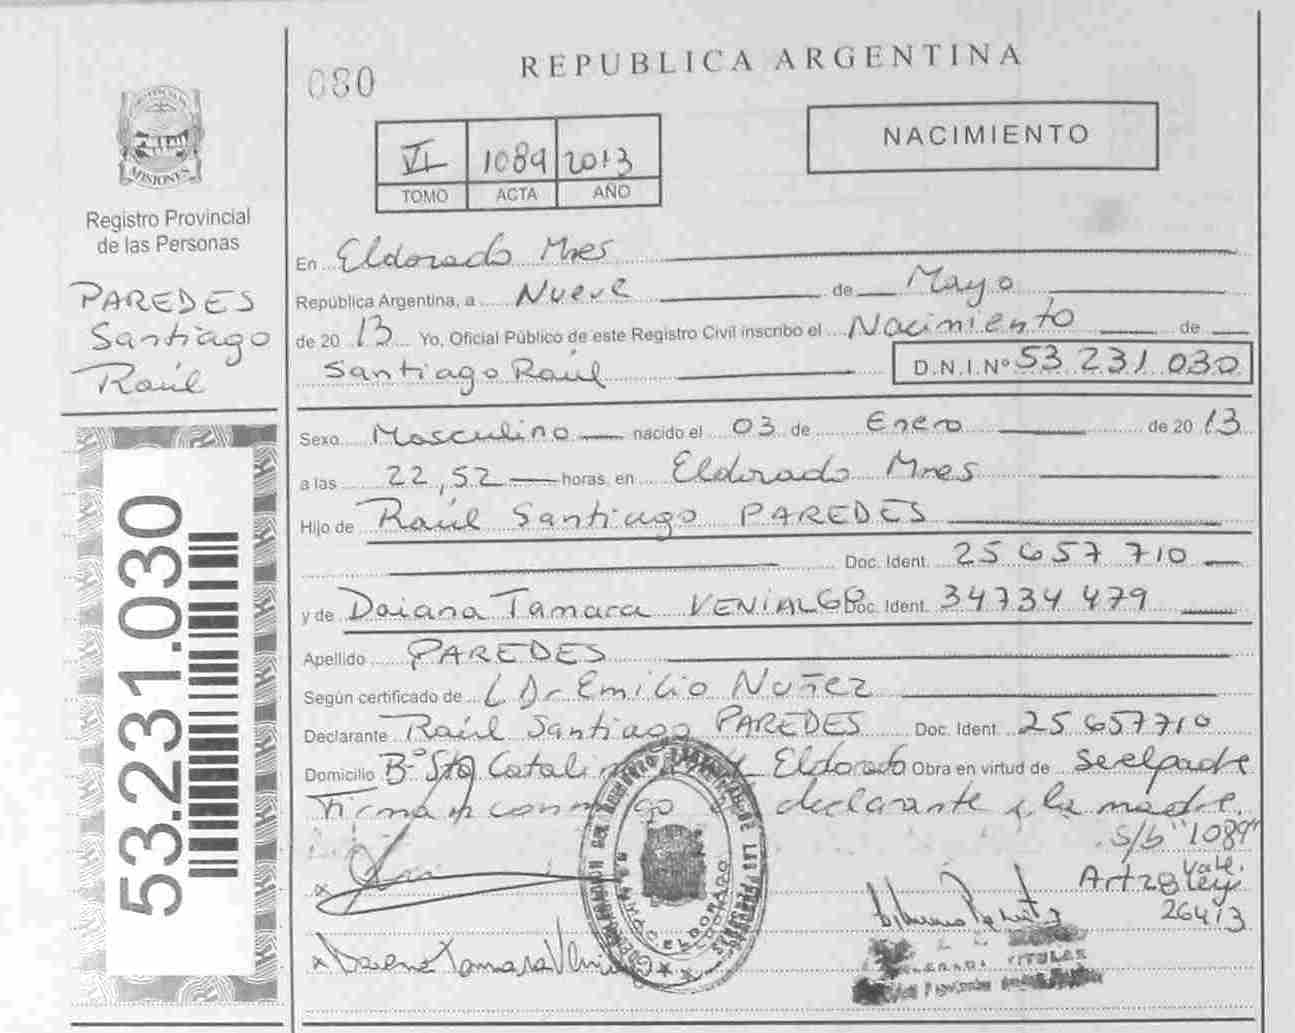 080
REPUBLICA ARGENTINA
NACIMIENTO
VI 1089 2013
TOMO ACTA AÑO
MISIONES
Registro Provincial
de las Personas
PAREDES
Santiago
Raúl
53.231.030
En Eldorado Mnes
República Argentina, a Nueve de Mayo
de 2013 Yo, Oficial Público de este Registro Civil inscribo el Nacimiento de
Santiago Raúl D.N.I.Nº 53 231 030
Sexo Masculino nacido el 03 de Enero de 2013
a las 22,52 horas, en Eldorado Mnes
Hijo de Raúl Santiago PAREDES
Doc. Ident. 25 657 710
y de Daiana Tamara VENIALGO Doc. Ident. 34734 479
Apellido PAREDES
Según certificado de Dr Emilio Nuñez
Declarante Raúl Santiago PAREDES Doc. Ident. 25 657710
Domicilio Bº Sta Catalina Eldorado Obra en virtud de ser el padre
Firman conmigo declarante y la madre
s/b "1089"
Vale.
Art 28 Ley
26413
ELDORADO